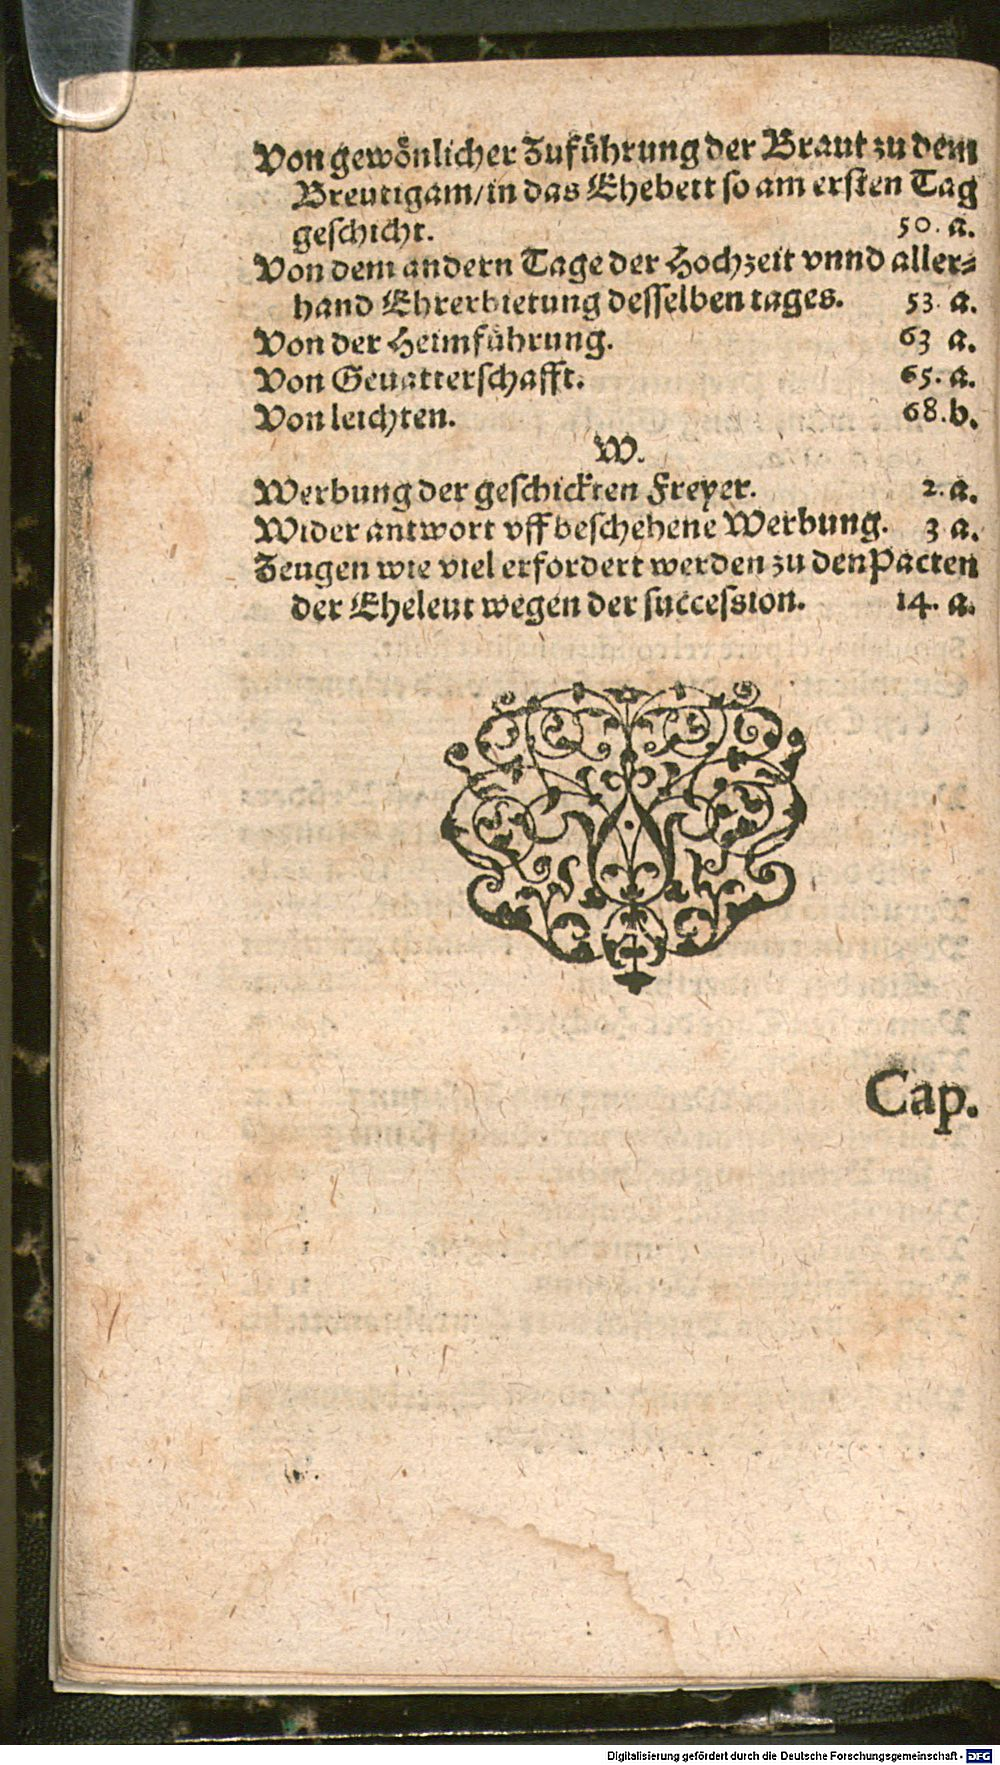 Von gewönlicher Zuführung der Braut zu dem
Breutigam/in das Ehebett so am ersten Tag
geschicht. 50. a.
Von dem andern Tage der Hochzeit vnnd aller-
hand Ehrerbietung desselben tages. 53. a.
Von der Heimführung. 63 a.
Von Geuatterschafft. 65. a.
Von leichten. 68. b.
W.
Werbung der geschickten Freyer. 2. a.
Wider antwort vff beschehene Werbung. 3 a.
Zeugen wie viel erfordert werden zu den Pacten
der Eheleut wegen der succession. 14. a.
Cap.
Digitalisierung gefördert durch die Deutsche Forschungsgemeinschaft - DFG